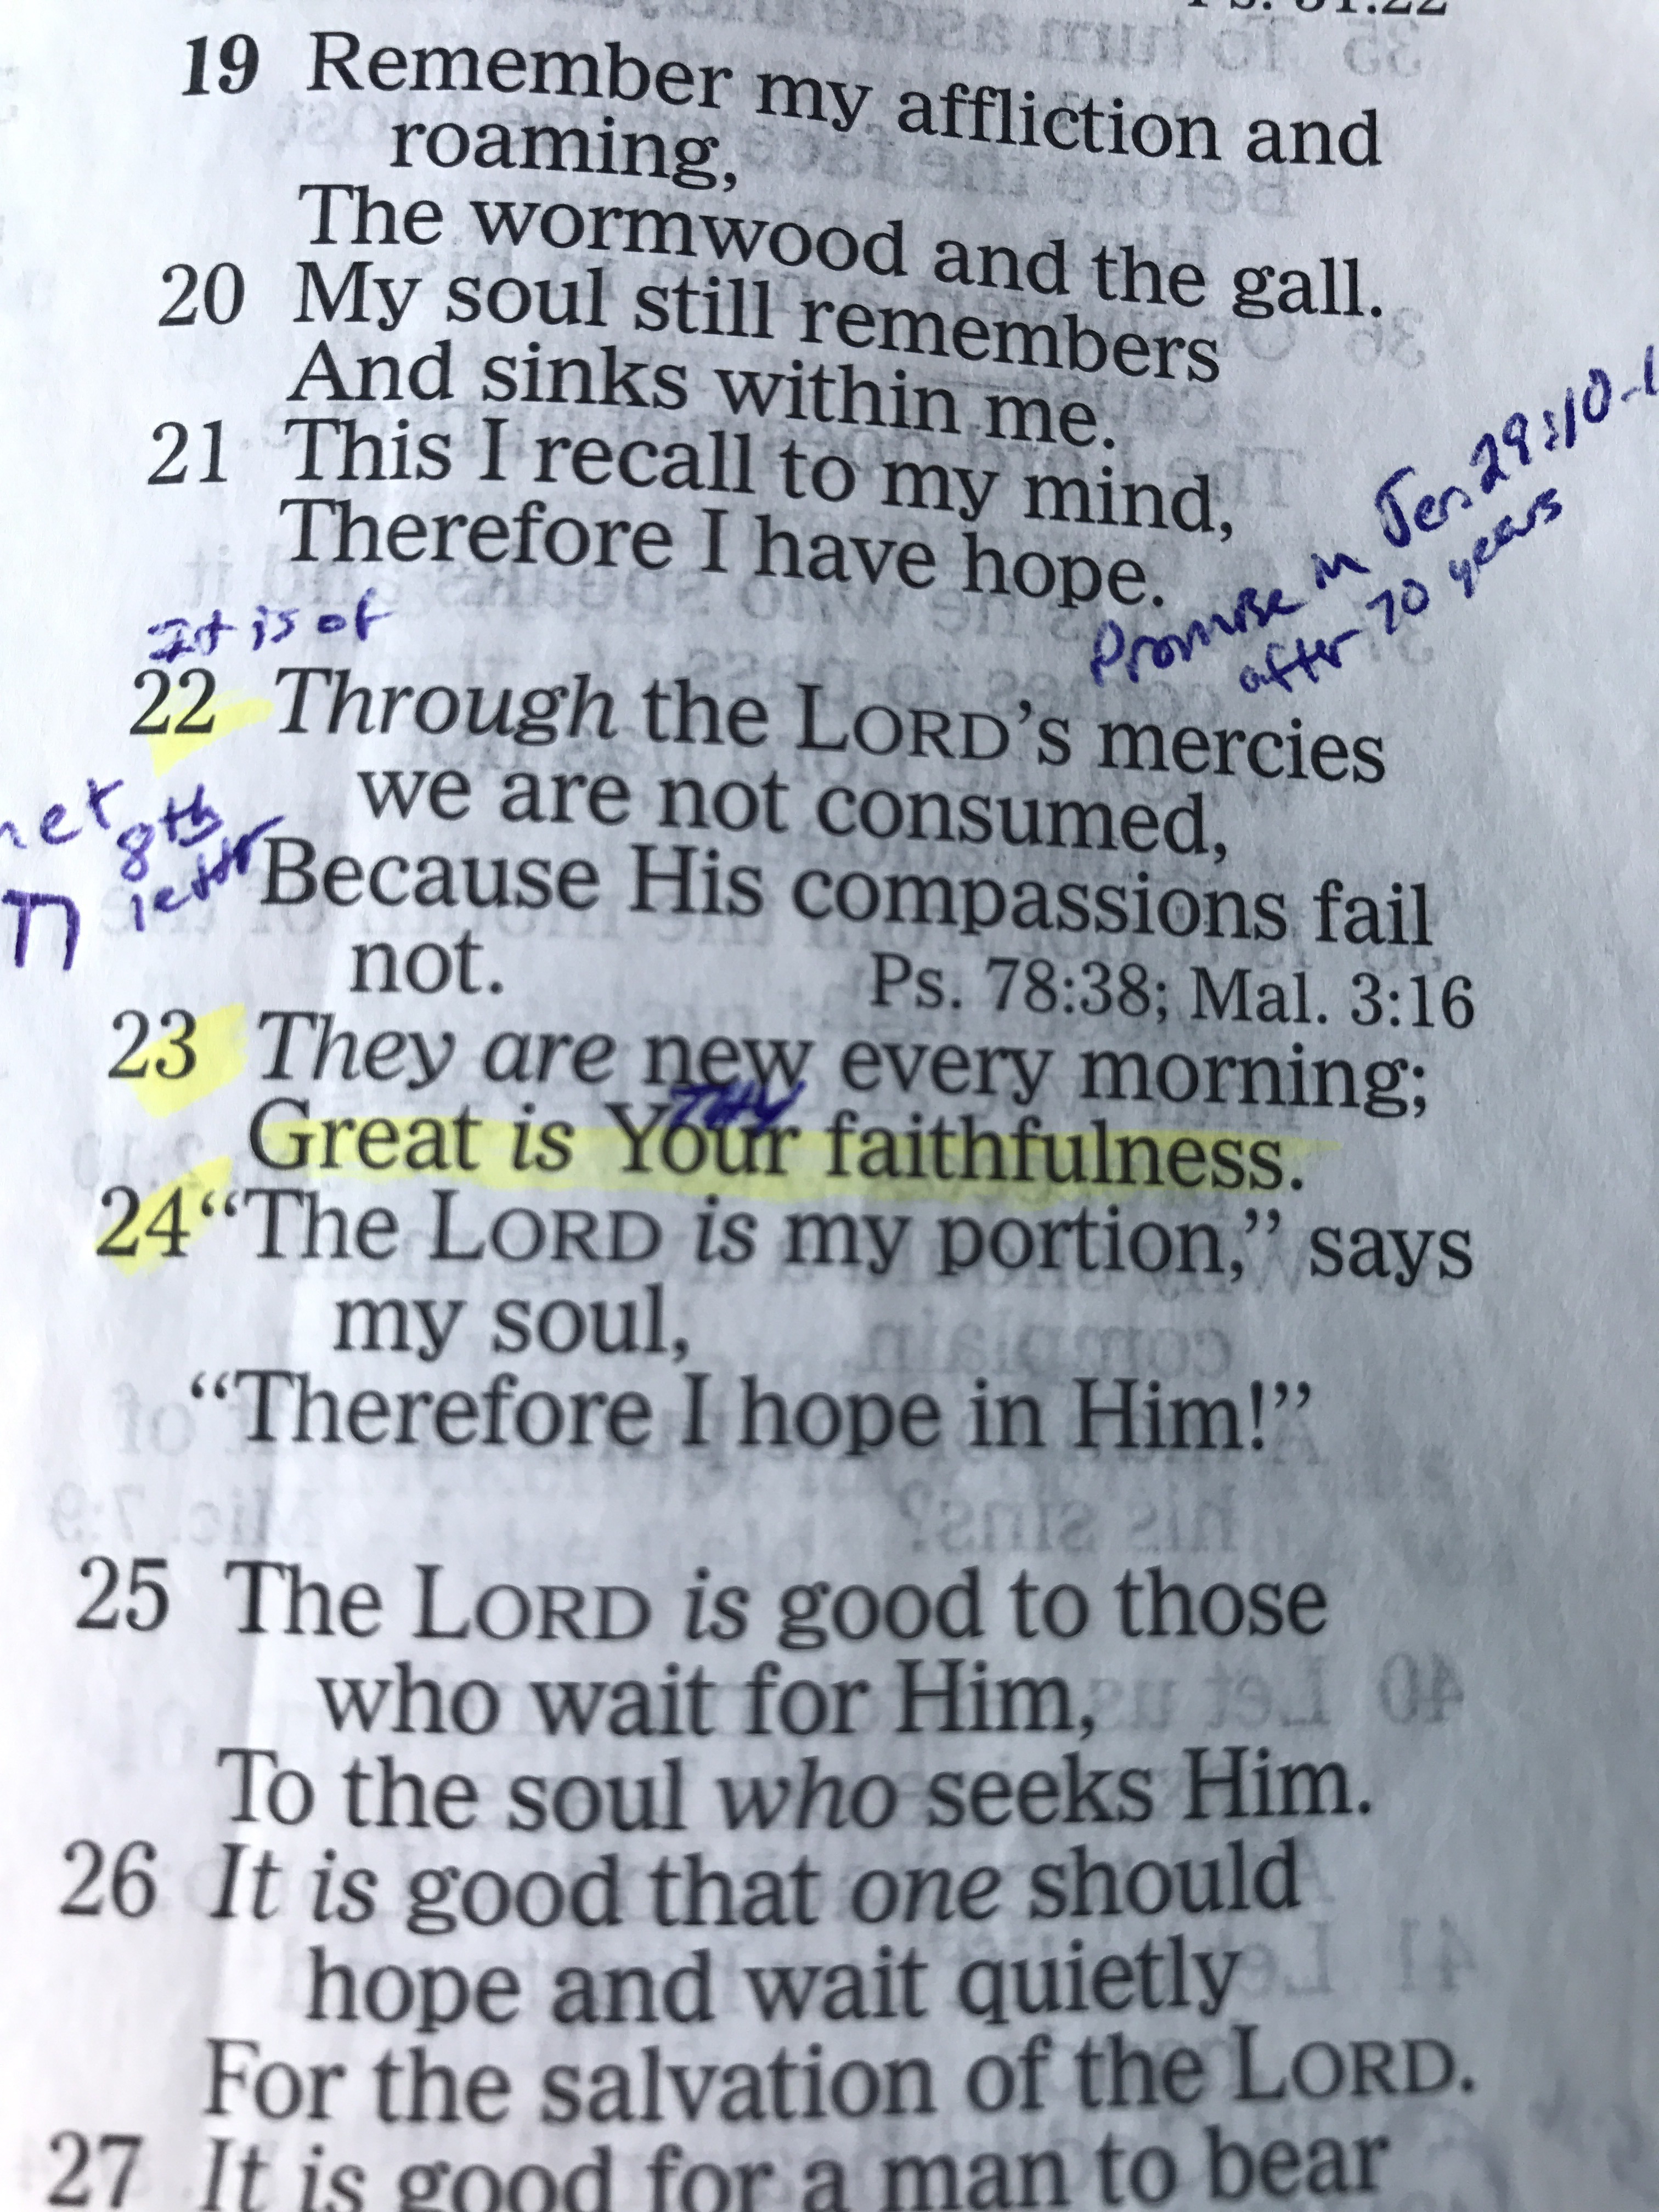 19 Remember my affliction and
roaming,
The wormwood and the gall.
20 My soul still remembers
And sinks within me.
21 This I recall to my mind,
Therefore I have hope.
Promise in Jer 29:10-1
after 70 years
It is of
22 Through the LORD's mercies
we are not consumed,
8th
letter
ח
Because His compassions fail
not. Ps. 78:38; Mal. 3:16
23 They are new every morning;
Thy
Great is Your faithfulness.
24 “The LORD is my portion,” says
my soul,
“Therefore I hope in Him!”
25 The LORD is good to those
who wait for Him,
To the soul who seeks Him.
26 It is good that one should
hope and wait quietly
For the salvation of the LORD.
27 It is good for a man to bear